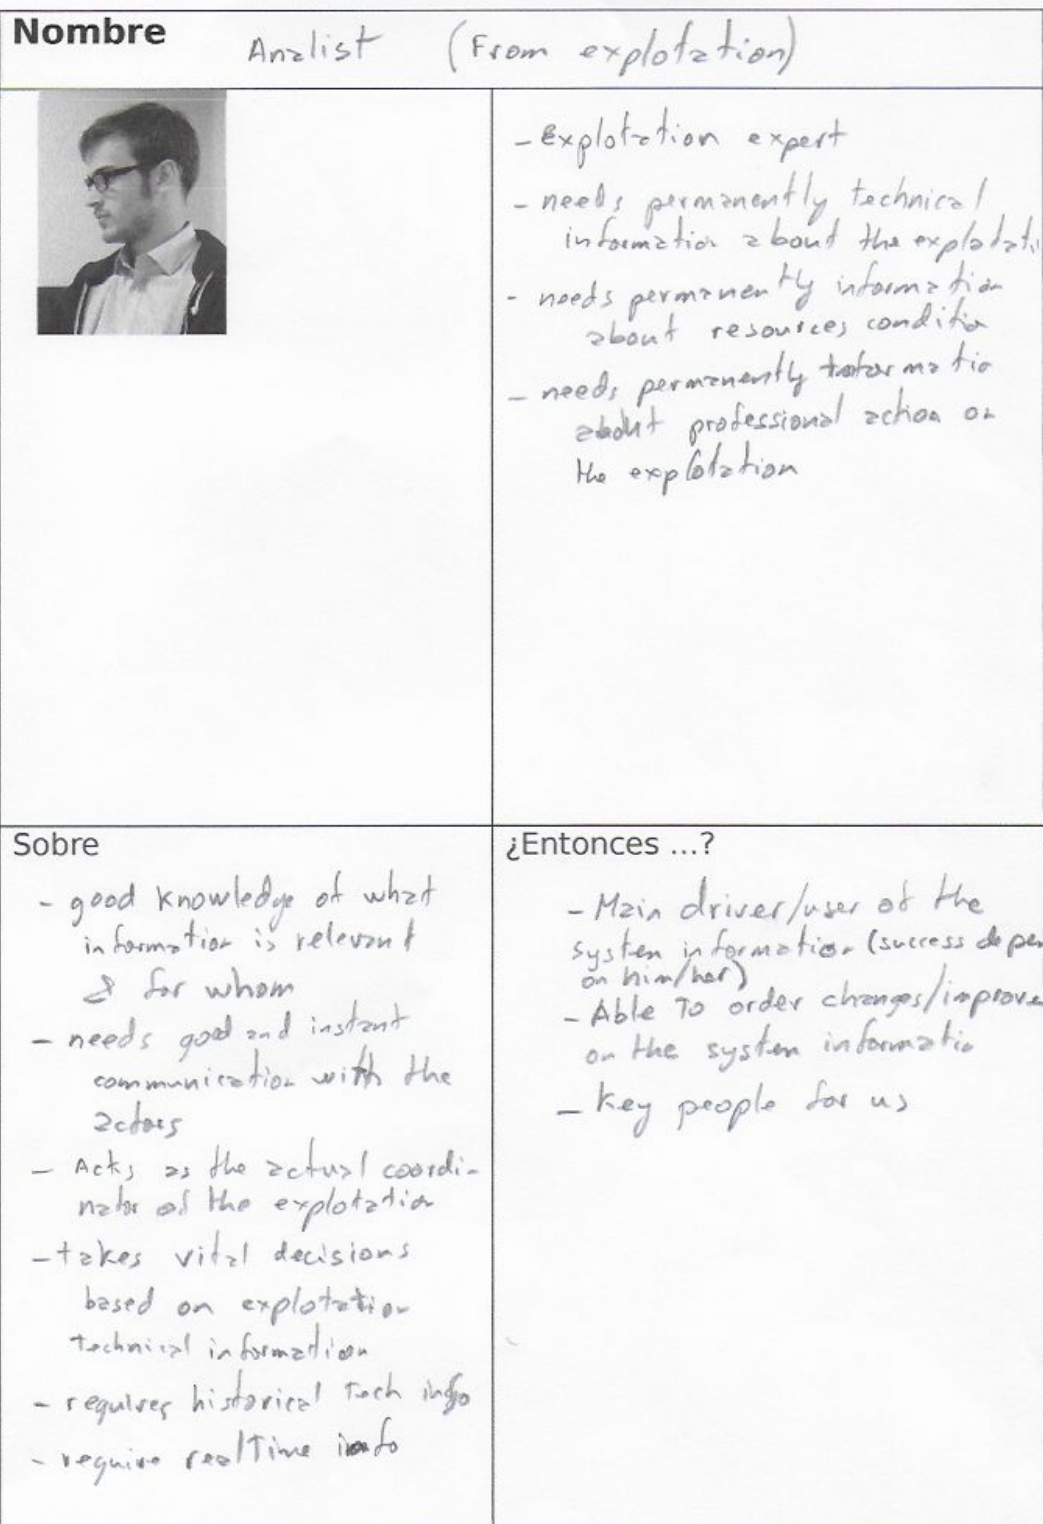 Nombre Analist (From explotation)
- Explotation expert
- needs permanently technical
information about the explotati
- needs permanently information
about resources conditio
- needs permanently informatio
about professional action on
the explotation
Sobre
- good knowledge of what
information is relevant
& for whom
- needs good and instant
communication with the
actors
- Acts as the actual coordi-
nator of the explotation
- takes vital decisions
based on explotation
technical information
- requires historical Tech info
- require realTime info
¿Entonces ...?
- Main driver/user of the
system information (success depen
on him/her)
- Able To order changes/improve
on the system informatio
- Key people for us